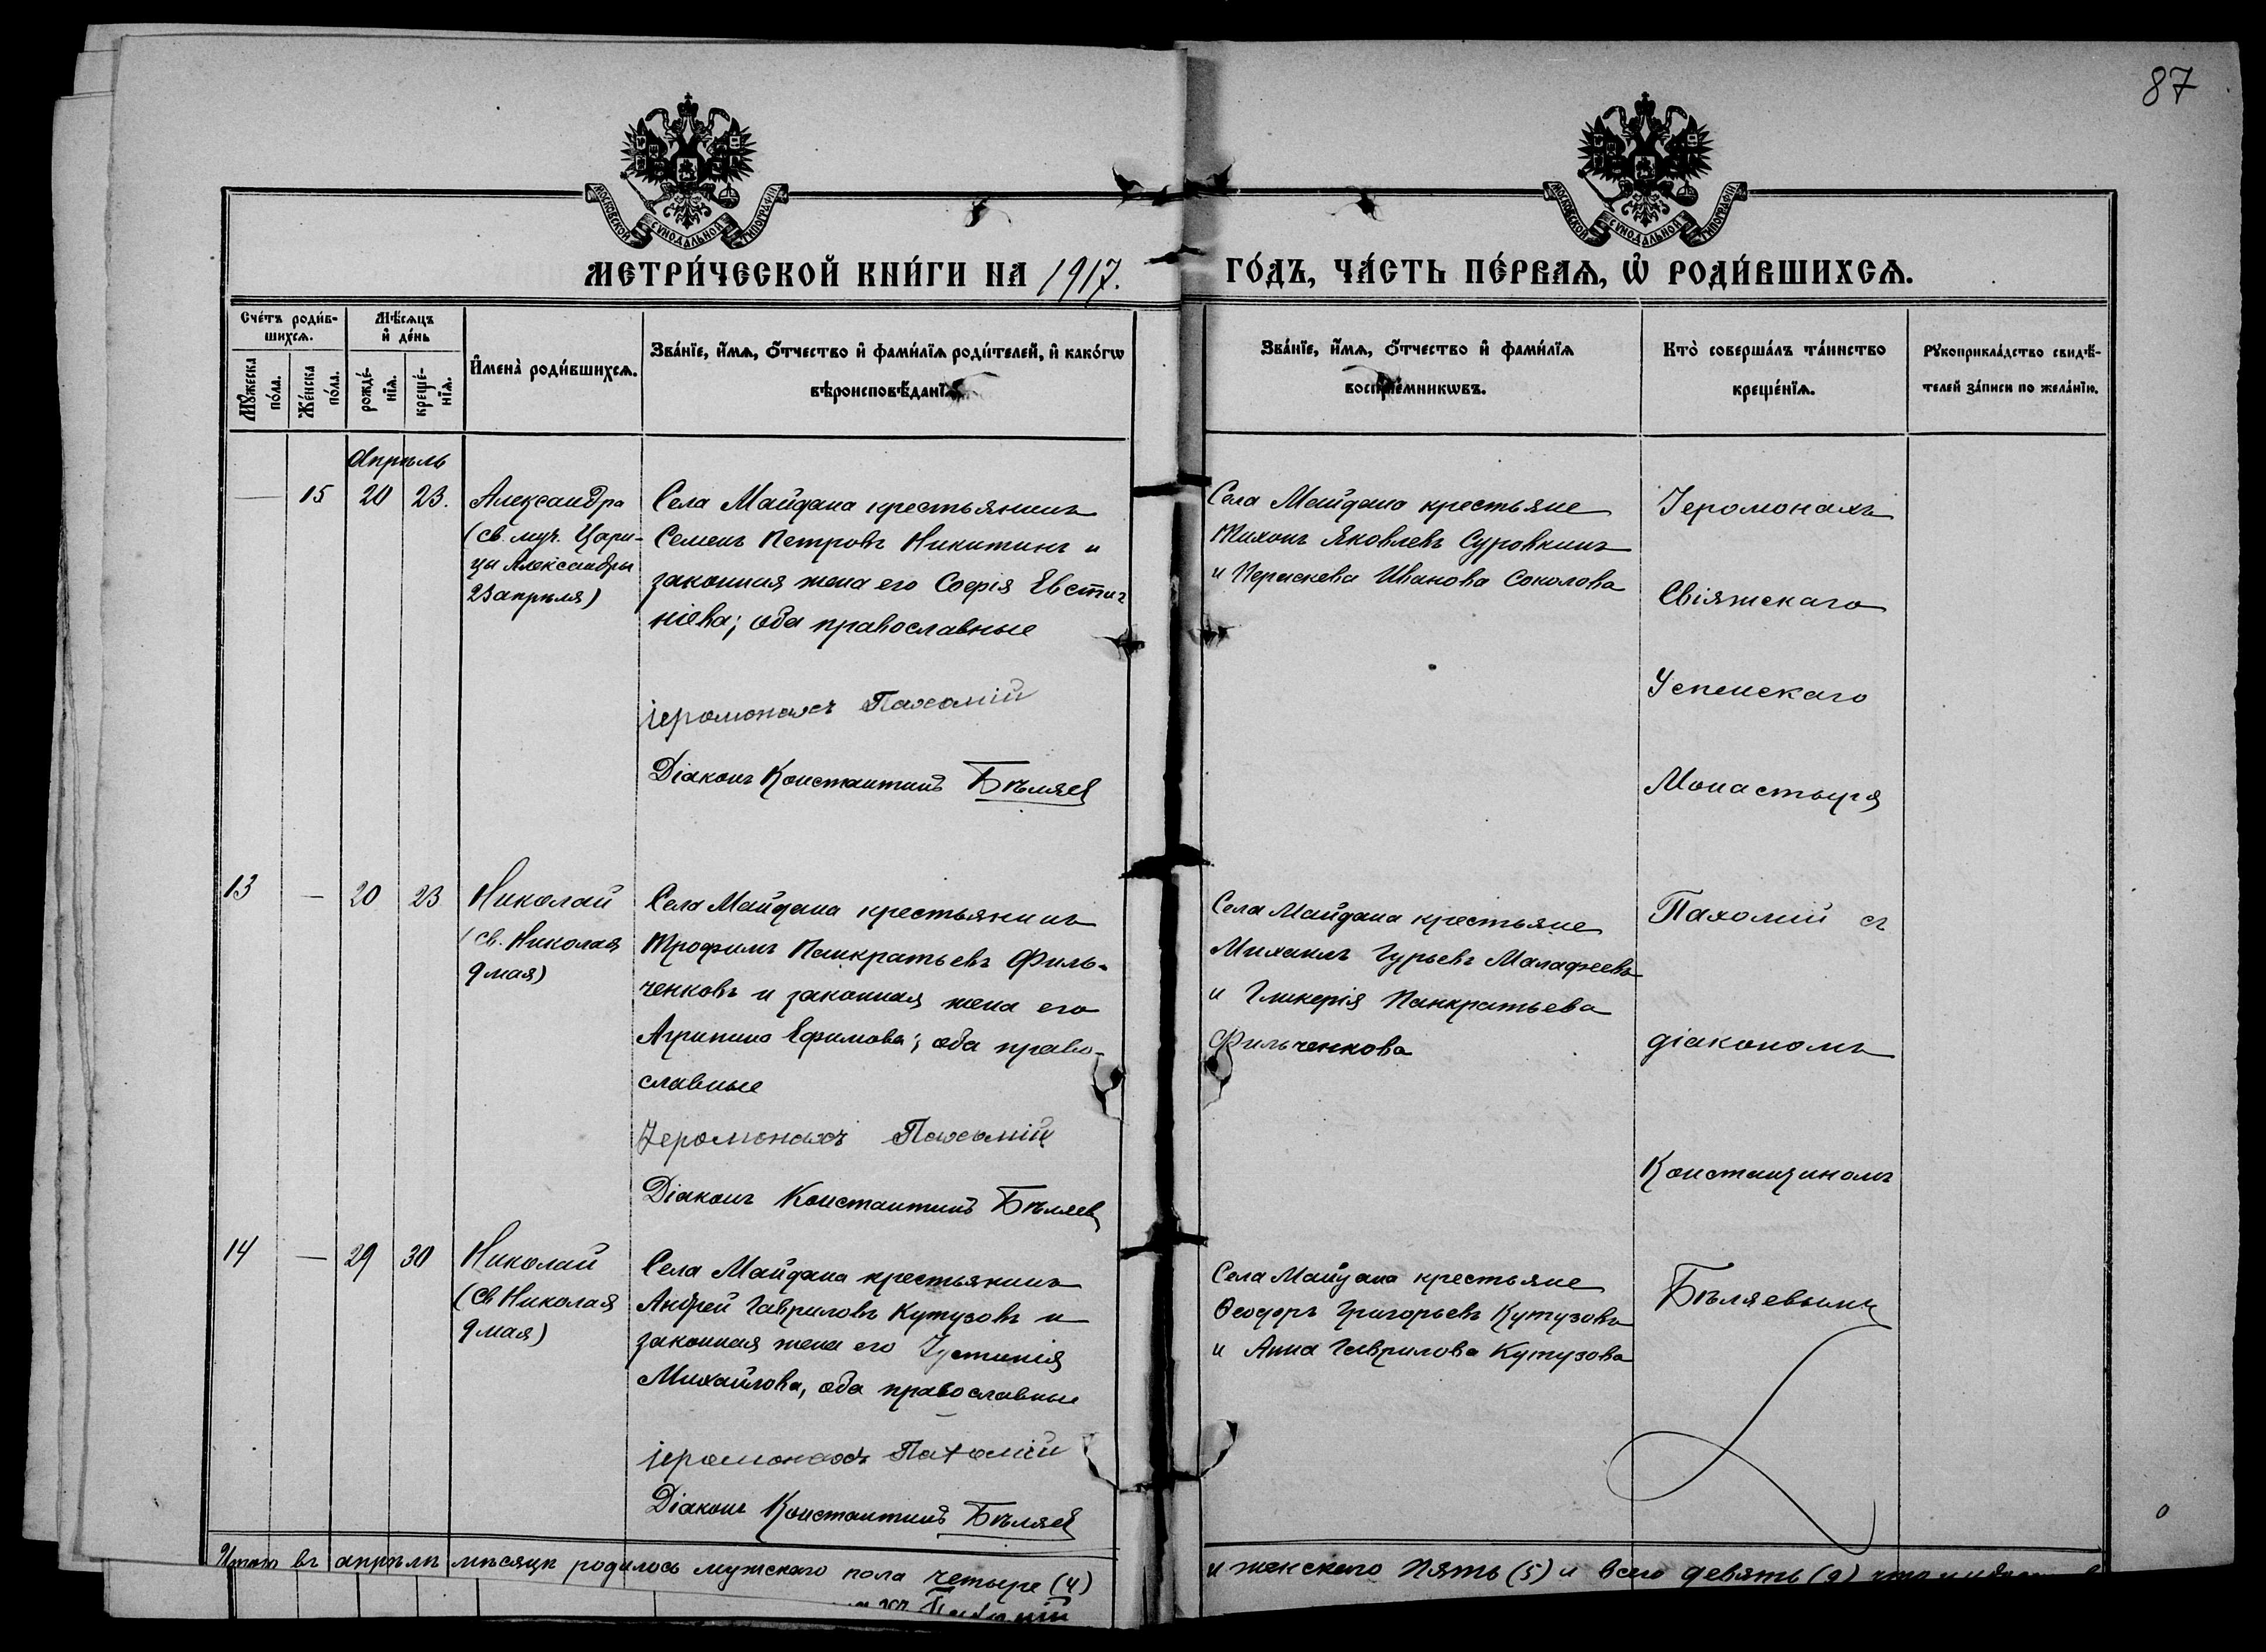 87
МОСКОВСКОЙ СУНОДАЛЬНОЙ ТИПОГРАФІИ
МОСКОВСКОЙ СУНОДАЛЬНОЙ ТИПОГРАФІИ
МЕТРИ́ЧЕСКОЙ КНИ́ГИ НА 1917.
ГО́ДЪ, ЧА́СТЬ ПЕ́РВАѦ, Ѡ҆ РОДИ́ВШИХСѦ.
Сче́тъ роди́в-
шихсѧ.
Мꙋ́жеска
по́ла.
Же́нска
по́ла.
Мѣ́сѧцъ
и҆ де́нь
рожде́-
нїѧ.
креще́-
нїѧ.
И҆мена̀ роди́вшихсѧ.
Зва́нїе, и҆́мѧ, ѻ҆́тчество и҆ фами́лїѧ роди́телей, и҆ како́гѡ
вѣроисповѣ́данїѧ.
Зва́нїе, и҆́мѧ, ѻ҆́тчество и҆ фами́лїѧ
воспрїе́мникѡвъ.
Кто̀ соверша́лъ та́инство
креще́нїѧ.
Рꙋкоприкла́дство свидѣ́-
телей за́писи по жела́нїю.
Апрѣль
— 15 20 23.
Александра
(св. муч. Цари-
цы Александры
23 апрѣля)
Села Майдана крестьянинъ
Семенъ Петровъ Никитинъ и
законная жена его Софія Евстиг
ніева; оба православные
Іеромонахъ Пахомій
Діаконъ Константинъ Бѣляев
Села Майдана крестьяне
Тихонъ Яковлевъ Суровкинъ
и Параскева Иванова Соколова
Іеромонахъ
Свіяжскаго
Успенскаго
Монастыря
13 — 20 23
Николай
(св. Николая
9 мая)
Села Майдана крестьянинъ
Трофимъ Панкратьевъ Филь-
ченковъ и законная жена его
Агрипина Ефимова; оба право-
славные
Іеромонахъ Пахомій
Діаконъ Константинъ Бѣляев
Села Майдана крестьяне
Михаилъ Гурьевъ Малафеевъ
и Гликерія Панкратьева
Фильченкова
Пахомій съ
діакономъ
Константиномъ
14 — 29 30
Николай
(св Николая
9 мая)
Села Майдана крестьянинъ
Андрей Гавриловъ Кутузовъ и
законная жена его Іустинія
Михайлова, оба православные
Іеромонахъ Пахомій
Діаконъ Константинъ Бѣляев
Села Майдана крестьяне
Ѳеодоръ Григорьевъ Кутузовъ
и Анна Гаврилова Кутузова
Бѣляевымъ
Итого въ апрѣлѣ мѣсяцѣ родилось мужскаго пола четыре (4)
и женскаго пять (5) и всего девять (9)
Пахомій